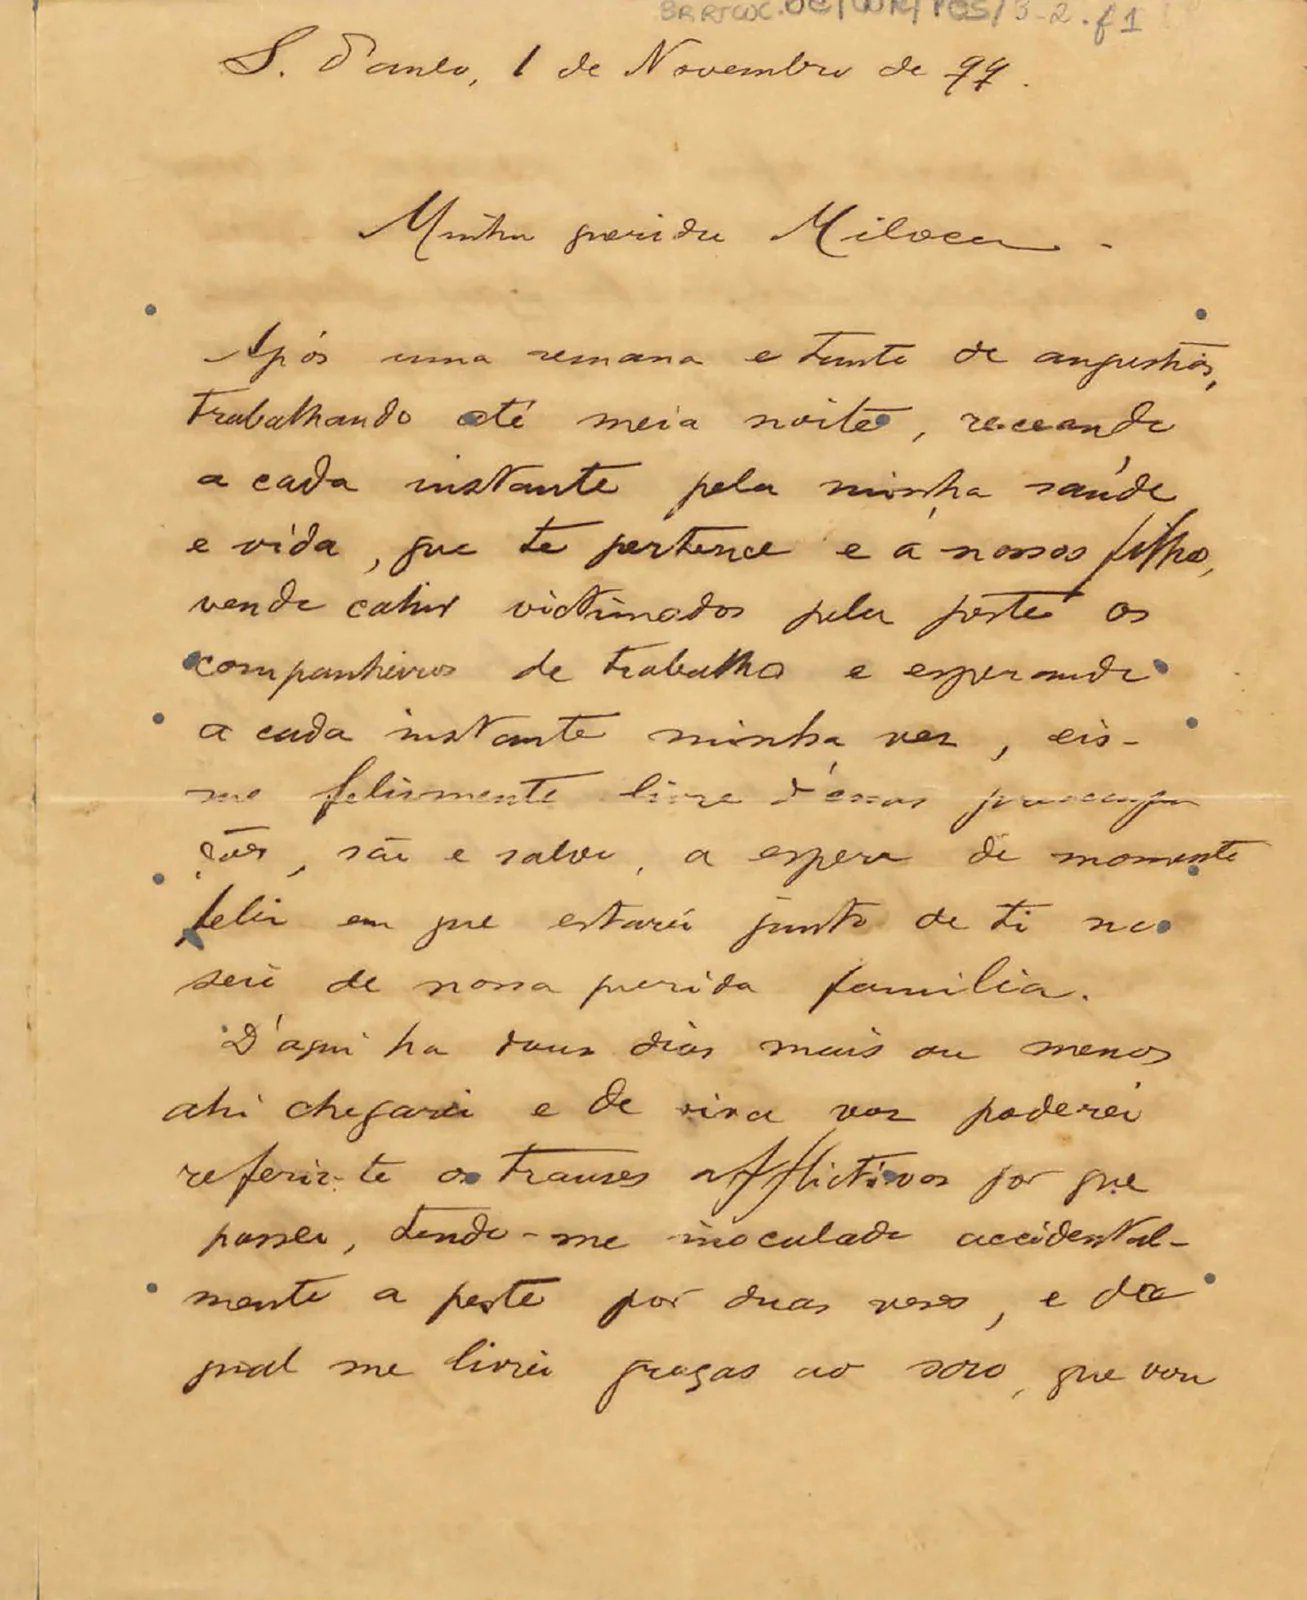 BR RJCOC.OC/COR/PES/3-2.f1
S. Paulo, 1 de Novembro de 99.
Minha querida Miloca.
Após uma semana e tanto de angustias,
trabalhando até meia noite, receando
a cada instante pela minha saúde
e vida, que te pertence e a nossos filhos,
vendo cahir victimados pela peste os
companheiros de trabalho e esperando
a cada instante minha vez, eis-
me felizmente livre d'essas preoccupa
ções, são e salvo, a espera de momento
feliz em que estarei junto de ti no
seio de nossa querida familia.
D'aqui ha dous dias mais ou menos
ahi chegarei e de viva voz poderei
referir-te os transes afflictivos por que
passei, tendo-me inoculado accidental-
mente a peste por duas vezes, e da
qual me livrei graças ao soro, que vou